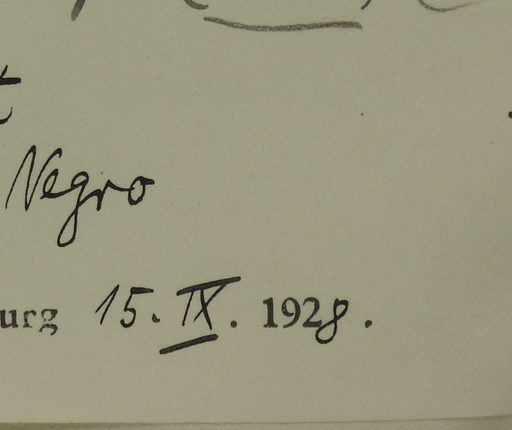 t
Negro
urg 15. IX. 1928.